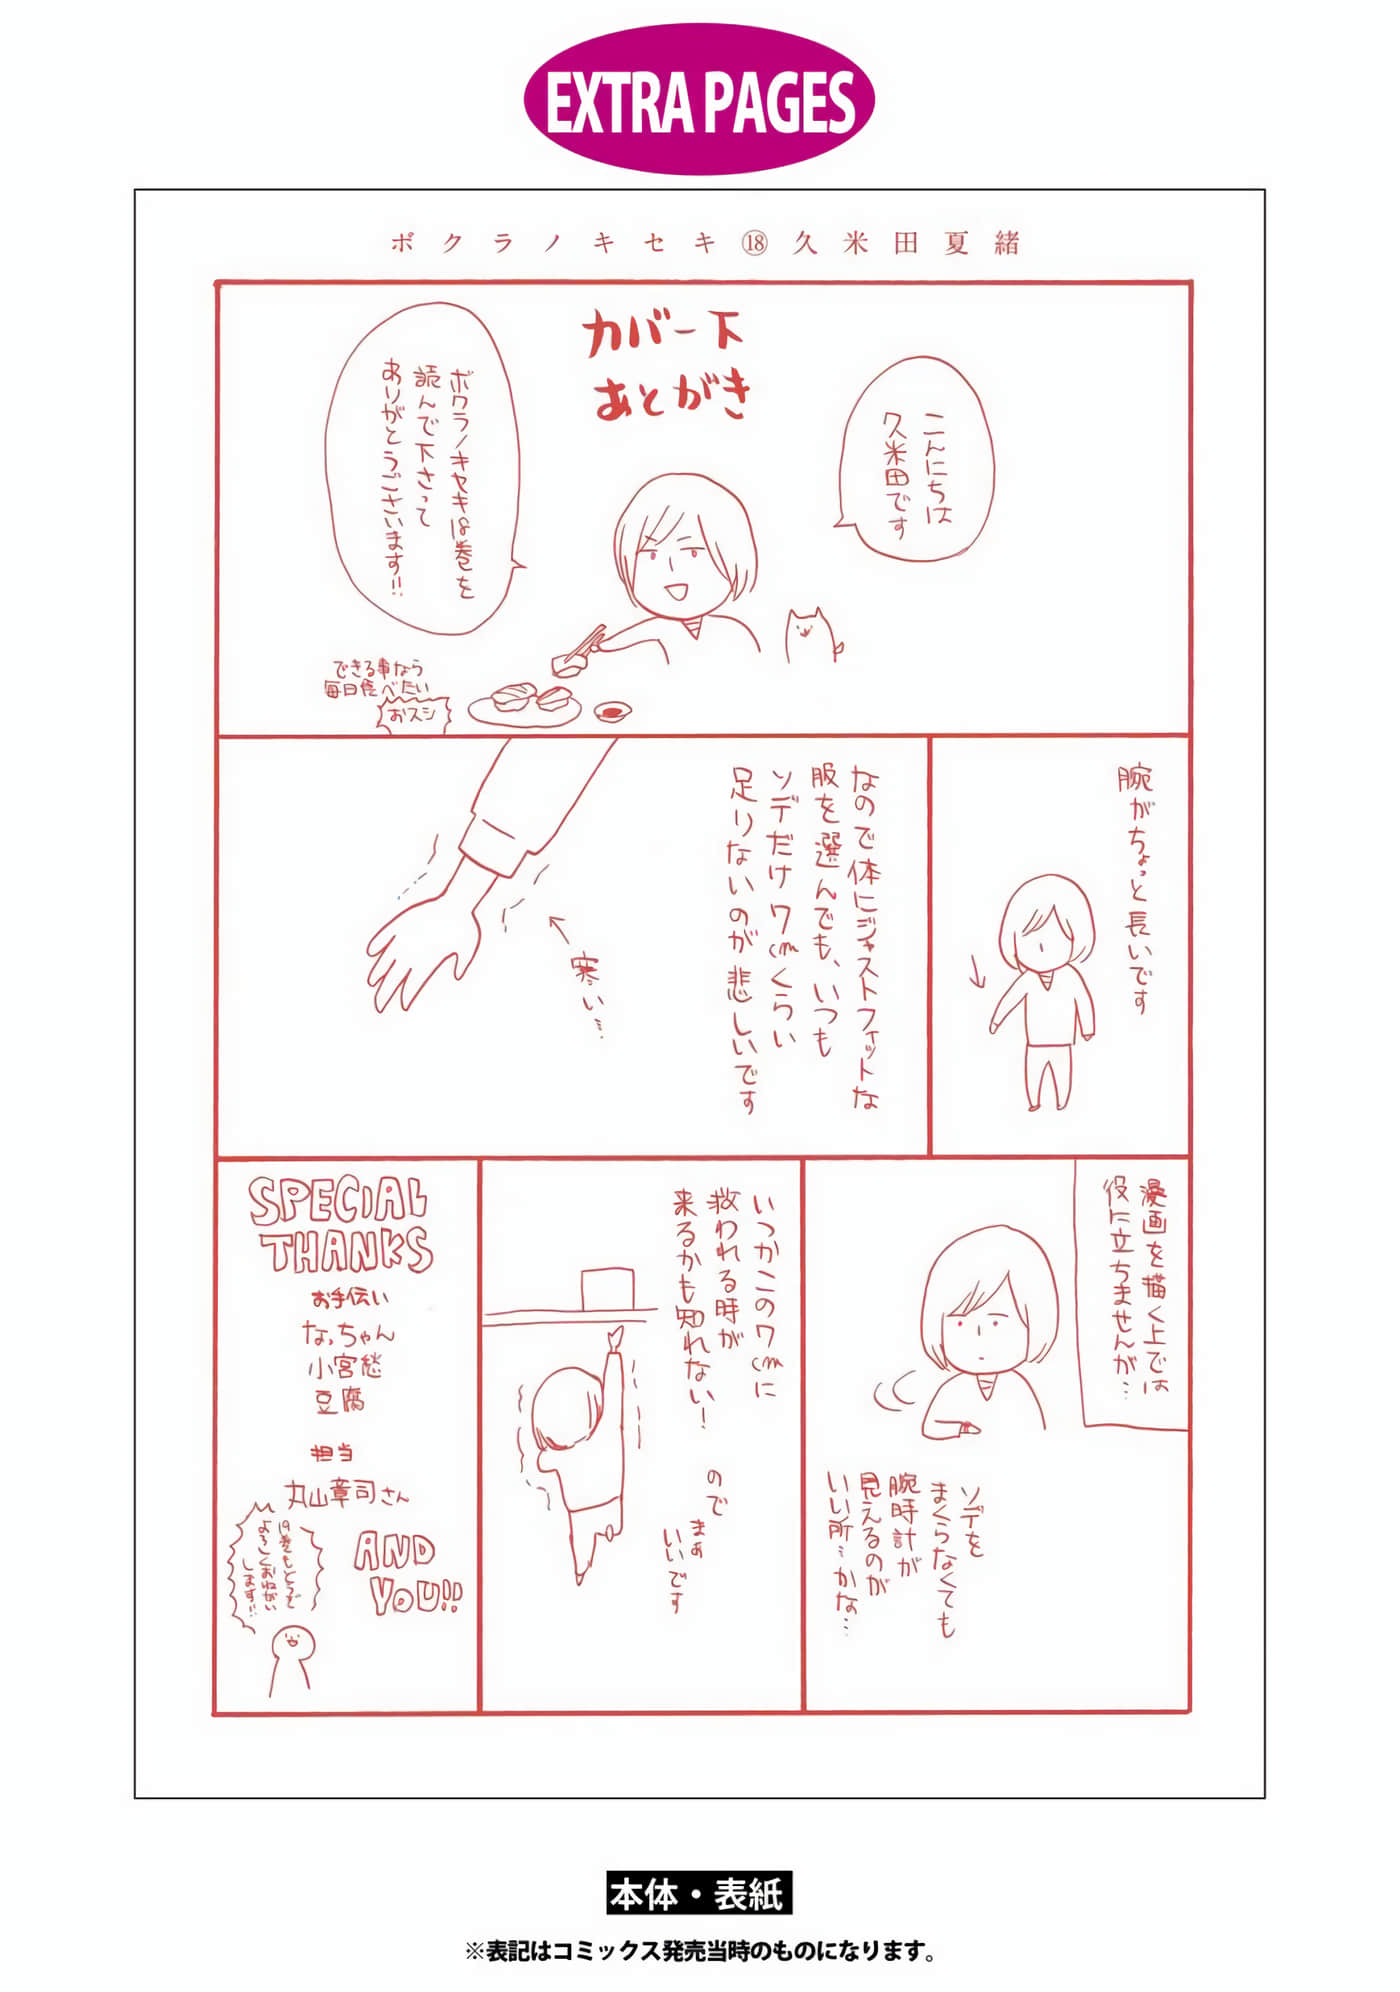 EXTRA PAGES
ボクラノキセキ⑱久米田夏緒
カバー下
あとがき
こんにちは
久米田です
ボクラノキセキ18巻を
読んで下さって
ありがとうございます!!
できる事なら
毎日食べたい
おスシ
腕がちょっと長いです
なので体にジャストフィットな
服を選んでも、いつも
ソデだけ7cmくらい
足りないのが悲しいです
寒い…
漫画を描く上では
役に立ちませんが…
ソデを
まくらなくても
腕時計が
見えるのが
いい所…かな…
いつかこの7cmに
救われる時が
来るかも知れない!
のでまぁ
いいです
SPECIAL
THANKS
お手伝い
なっちゃん
小宮愁
豆腐
担当
丸山章司さん
AND
YOU!!
19巻もどうぞ
よろしくおねがい
します!!
本体・表紙
※表記はコミックス発売当時のものになります。